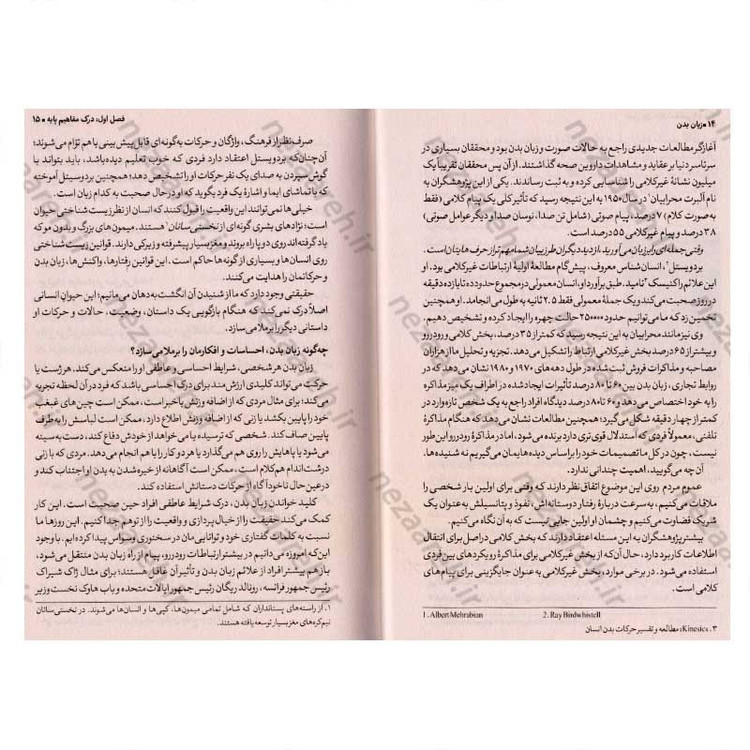 ۱۴ ▪ زبان بدن
آغازگر مطالعات جدیدی راجع به حالات صورت و زبان بدن بود و محققان بسیاری در
سرتاسر دنیا بر عقاید و مشاهدات داروین صحه گذاشتند. از آن پس محققان تقریبا یک
میلیون نشانهٔ غیرکلامی را شناسایی کرده و به ثبت رساندند. یکی از این پژوهشگران به
نام آلبرت محرابیان۱ در سال ۱۹۵۰ به این نتیجه رسید که تأثیر کلی یک پیام کلامی (فقط
به صورت کلام) ۷ درصد، پیام صوتی (شامل تن صدا، نوسان صدا و دیگر عوامل صوتی)
۳۸ درصد و پیام غیرکلامی ۵۵ درصد است.
وقتی جمله‌ای را بر زبان می‌آورید، از دید دیگران طرز بیان شما مهم‌تر از حرف‌هایتان است.
بردویستل۲، انسان‌شناس معروف، پیش‌گام مطالعهٔ اولیهٔ ارتباطات غیرکلامی بود. او
این علائم را کنسیک۳ نامید. طبق برآورد او، انسان معمولی در مجموع حدود ده تا یازده دقیقه
در روز صحبت می‌کند و یک جملهٔ معمولی فقط ۲.۵ ثانیه به طول می‌انجامد. او همچنین
تخمین زد که ما می‌توانیم حدود ۲۵۰۰۰۰ حالت چهره را ایجاد کرده و تشخیص دهیم.
وی نیز مانند محرابیان به این نتیجه رسید که کمتر از ۳۵ درصد، بخش کلامی رودررو
و بیشتر از ۶۵ درصد بخش غیرکلامی ارتباط را تشکیل می‌دهد. تجزیه و تحلیل ما از هزاران
مصاحبه و مذاکرات فروش ثبت شده در طول دهه‌های ۱۹۷۰ و ۱۹۸۰ نشان می‌دهد که در
روابط تجاری، زبان بدن بین ۶۰ تا ۸۰ درصد تأثیرات ایجادشده در اطراف یک میز مذاکره
را به خود اختصاص می‌دهد و ۶۰ تا ۸۰ درصد دیدگاه افراد راجع به یک شخص تازه‌وارد در
کمتر از چهار دقیقه شکل می‌گیرد؛ همچنین مطالعات نشان می‌دهد که هنگام مذاکرهٔ
تلفنی، معمولاً فردی که استدلال قوی‌تری دارد برنده می‌شود، اما در مذاکرهٔ رودررو این طور
نیست، چون در کل ما تصمیمات خود را براساس دیده‌هایمان می‌گیریم نه شنیده‌ها.
آن چه می‌گویید، اهمیت چندانی ندارد.
عموم مردم روی این موضوع اتفاق نظر دارند که وقتی برای اولین بار شخصی را
ملاقات می‌کنیم، به سرعت دربارهٔ رفتار دوستانه‌اش، نفوذ و پتانسیلش به عنوان یک
شریک قضاوت می‌کنیم و چشمان او اولین جایی نیست که به آن نگاه می‌کنیم.
بیشتر پژوهشگران به این مسئله اعتقاد دارند که بخش کلامی در اصل برای انتقال
اطلاعات کاربرد دارد، حال آن‌که از بخش غیرکلامی برای مذاکرهٔ رویکردهای بین فردی
استفاده می‌شود. در برخی موارد، بخش غیرکلامی به عنوان جایگزینی برای پیام‌های
کلامی است.
1. Albert Mehrabian 2. Ray Birdwhistell
۳. «Kinesic»: مطالعه و تفسیر حرکات بدن انسان
فصل اول: درک مفاهیم پایه ▪ ۱۵
صرف نظر از فرهنگ، واژگان و حرکات به گونه‌ای قابل پیش بینی با هم تؤام می‌شوند؛
آن‌چنان‌که بردویستل اعتقاد دارد فردی که خوب تعلیم دیده باشد، باید بتواند با
گوش سپردن به صدای یک نفر حرکات او را تشخیص دهد؛ همچنین بردویستل آموخته
که با تماشای ایما و اشارهٔ یک فرد بگوید که او در حال صحبت به کدام زبان است.
خیلی‌ها نمی‌توانند این واقعیت را قبول کنند که انسان از نظر زیست‌شناختی حیوان
است؛ نژادهای بشری گونه‌ای از نخستی‌سانان۱ هستند. میمون‌های بزرگ و بدون مو که
یاد گرفته‌اند روی دو پا راه بروند و مغز بسیار پیشرفته و زیرکی دارند. قوانین زیست‌شناختی
روی انسان‌ها و بسیاری از گونه‌ها حاکم است. این قوانین رفتارها، واکنش‌ها، زبان بدن
و حرکاتمان را هدایت می‌کنند.
حقیقتی وجود دارد که ما از شنیدن آن انگشت به دهان می‌مانیم؛ این حیوان انسانی
اصلاً درک نمی‌کند که هنگام بازگویی یک داستان، وضعیت، حالات و حرکات او
داستانی دیگر را برملا می‌سازد.
چه‌گونه زبان بدن، احساسات و افکارمان را برملا می‌سازد؟
زبان بدن هر شخصی، شرایط احساسی و عاطفی او را منعکس می‌کند. هر ژست یا
حرکت می‌تواند کلیدی ارزشمند برای درک احساسی باشد که فرد در آن لحظه تجربه
می‌کند؛ برای مثال مردی که از اضافه وزنش باخبر است، ممکن است چین‌های غبغب
خود را پایین بکشد یا زنی که از اضافه وزنش اطلاع دارد، ممکن است لباسش را به طرف
پایین صاف کند. شخصی که ترسیده یا می‌خواهد از خودش دفاع کند، دست به سینه
می‌شود یا پاهایش را روی هم می‌گذارد یا هر دو کار را با هم انجام می‌دهد. مردی که با زنی
درشت‌اندام هم‌کلام است، ممکن است آگاهانه از خیره شدن به بدن او اجتناب کند و
در عین حال ناخودآگاه از حرکات دستانش استفاده کند.
کلید خواندن زبان بدن، درک شرایط عاطفی افراد حین صحبت است. این کار
کمک می‌کند حقیقت را از خیال‌پردازی و واقعیت را از توهم جدا کنیم. این روزها ما
نسبت به کلمات گفتاری خود و توانایی‌مان در سخنوری وسواس پیدا کرده‌ایم. با وجود
این‌که امروزه می‌دانیم در بیشتر ارتباطات رودررو، پیام از راه زبان بدن منتقل می‌شود،
باز هم بیشتر افراد از علائم زبان بدن و تأثیر آن غافل هستند؛ برای مثال ژاک شیراک
رئیس جمهور فرانسه، رونالد ریگان رئیس جمهور ایالات متحده و باب هاوک نخست وزیر
۱. از راسته‌های پستانداران که شامل تمامی میمون‌ها، کپی‌ها و انسان‌ها می‌شوند. در نخستی‌سانان
نیم‌کره‌های مغز بسیار توسعه یافته هستند.
nezaareh.ir